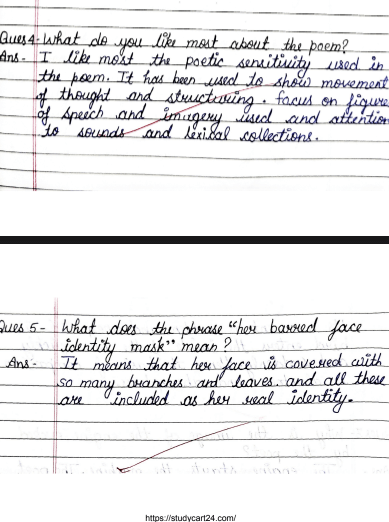 Ques 4- What do you like most about the poem?
Ans - I like most the poetic sensitivity used in
the poem. It has been used to show movement
of thought and structuring. focus on figure
of speech and imagery used and attention
to sounds and lexical collections.
Ques 5- What does the phrase "her barred face
identity mask" mean?
Ans - It means that her face is covered with
so many branches and leaves and all these
are included as her real identity.
https://studycart24.com/